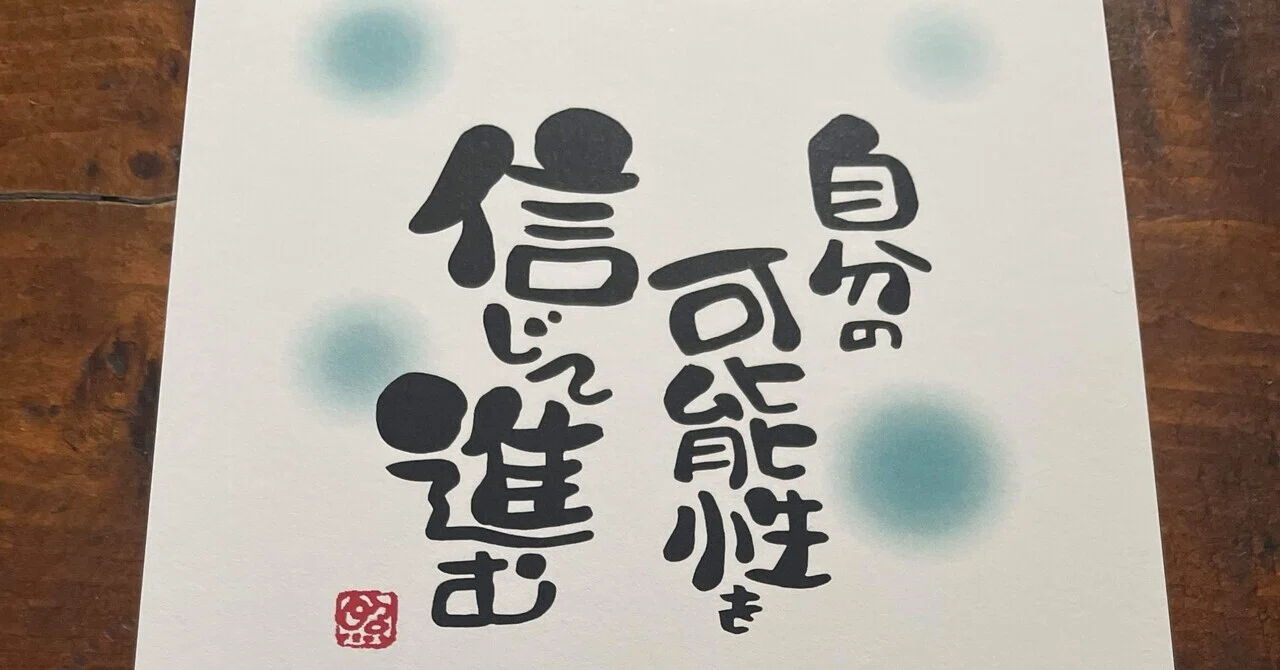 自分の
可能性を
信じて
進む